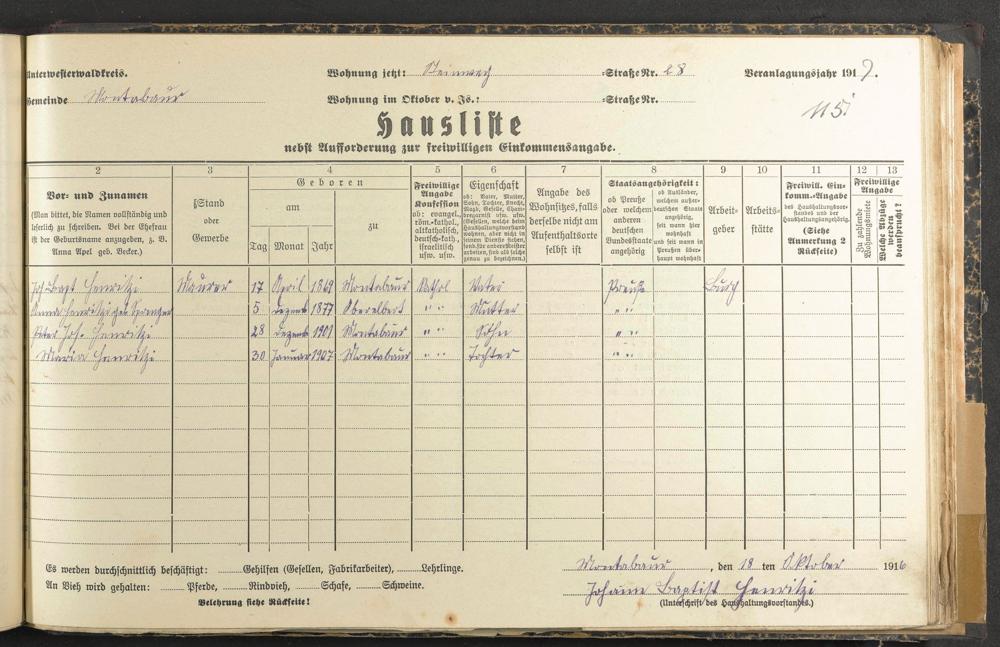 Unterwesterwaldkreis. Wohnung jetzt: Steinweg =Straße Nr. 28 Veranlagungsjahr 1917.
Gemeinde Montabaur Wohnung im Oktober v. Js.: =Straße Nr.
115
Hausliste
nebst Aufforderung zur freiwilligen Einkommensangabe.
2 3 4 5 6 7 8 9 10 11 12 13
Vor- und Zunamen
(Man bittet, die Namen vollständig und
leserlich zu schreiben. Bei der Ehefrau
ist der Geburtsname anzugeben, z. B.
Anna Apel geb. Becker.)
Stand
oder
Gewerbe
Geboren
am
zu
Tag Monat Jahr
Freiwillige
Angabe
Konfession
ob: evangel.,
röm.-kathol.,
altkatholisch,
deutsch-kath.,
israelitisch
usw. usw.
Eigenschaft
ob: Vater, Mutter,
Sohn, Tochter, Knecht,
Magd, Geselle,
Angabe des
Wohnsitzes, falls
derselbe nicht am
Aufenthaltsorte
selbst ist
Staatsangehörigkeit:
ob Preuße
oder welchem
anderen
deutschen
Bundesstaate
angehörig
ob Ausländer,
welchem außer-
deutschen Staate
angehörig,
seit wann hier
wohnhaft
und seit wann in
Preußen über-
haupt wohnhaft
Arbeit-
geber
Arbeits-
stätte
Freiwill. Ein-
komm.-Angabe
des Haushaltungsvor-
standes und der
Haushaltungsangehörig.
(Siehe
Anmerkung 2
Rückseite)
Freiwillige
Angabe
Zu zahlende
Wohnungsmiete
Welche Abzüge
werden
beansprucht?
Joh Bapt Henritzi Maurer 17 April 1869 Montabaur Kathol Vater Preuße Busch
Anna Henritzi geb Sprenger 5 Dezemb 1877 Oberelbert " " Mutter " "
Peter Jos. Henritzi 28 Dezemb 1901 Montabaur " " Sohn " "
Maria Henritzi 30 Januar 1907 Montabaur " " Tochter " "
Es werden durchschnittlich beschäftigt: Gehilfen (Gesellen, Fabrikarbeiter), Lehrlinge.
An Vieh wird gehalten: Pferde, Rindvieh, Schafe, Schweine.
Belehrung siehe Rückseite!
Montabaur, den 18 ten Oktober 1916
Johann Baptist Henritzi
(Unterschrift des Haushaltungsvorstandes.)